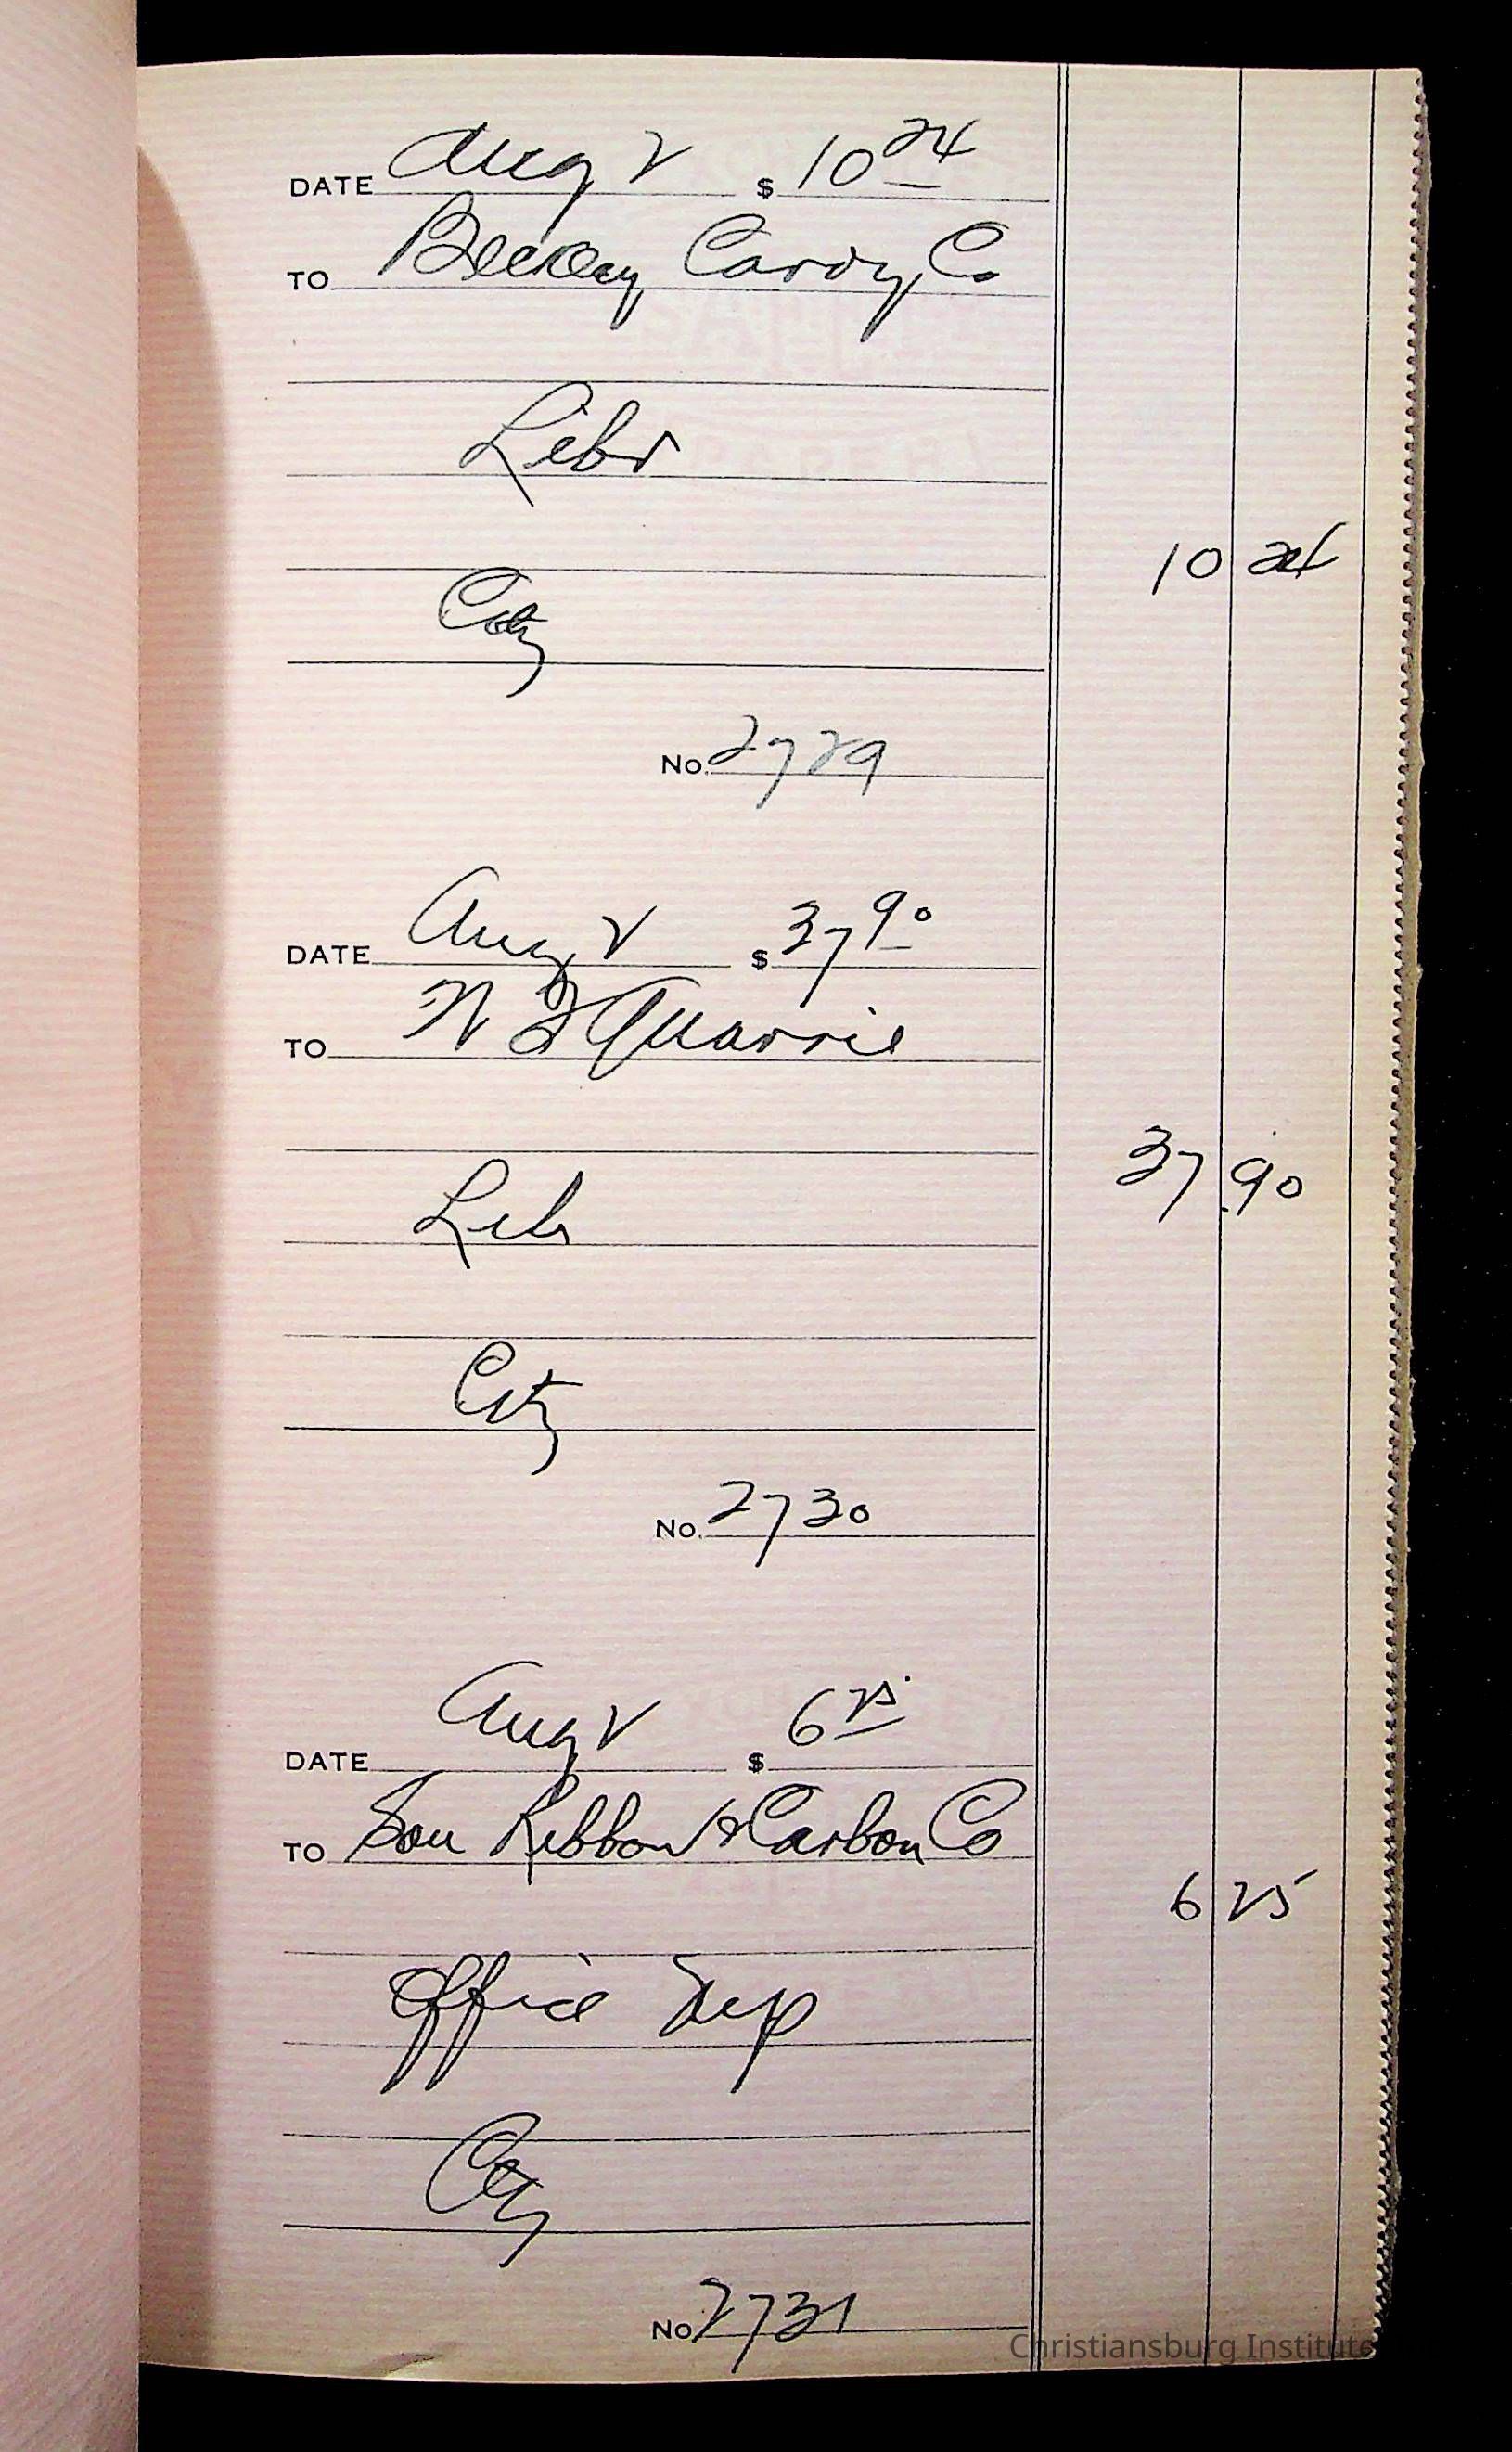 DATE Aug 2 $ 10 24
TO Beckley Cardy Co
Libr
10 24
City
No. 2729
DATE Aug 2 $ 37 90
TO W F Quarrie
37 90
Lib
City
No. 2730
DATE Aug 2 $ 6 25
TO Sou Ribbon & Carbon Co
6 25
Office Sup
City
No. 2731
Christiansburg Institute